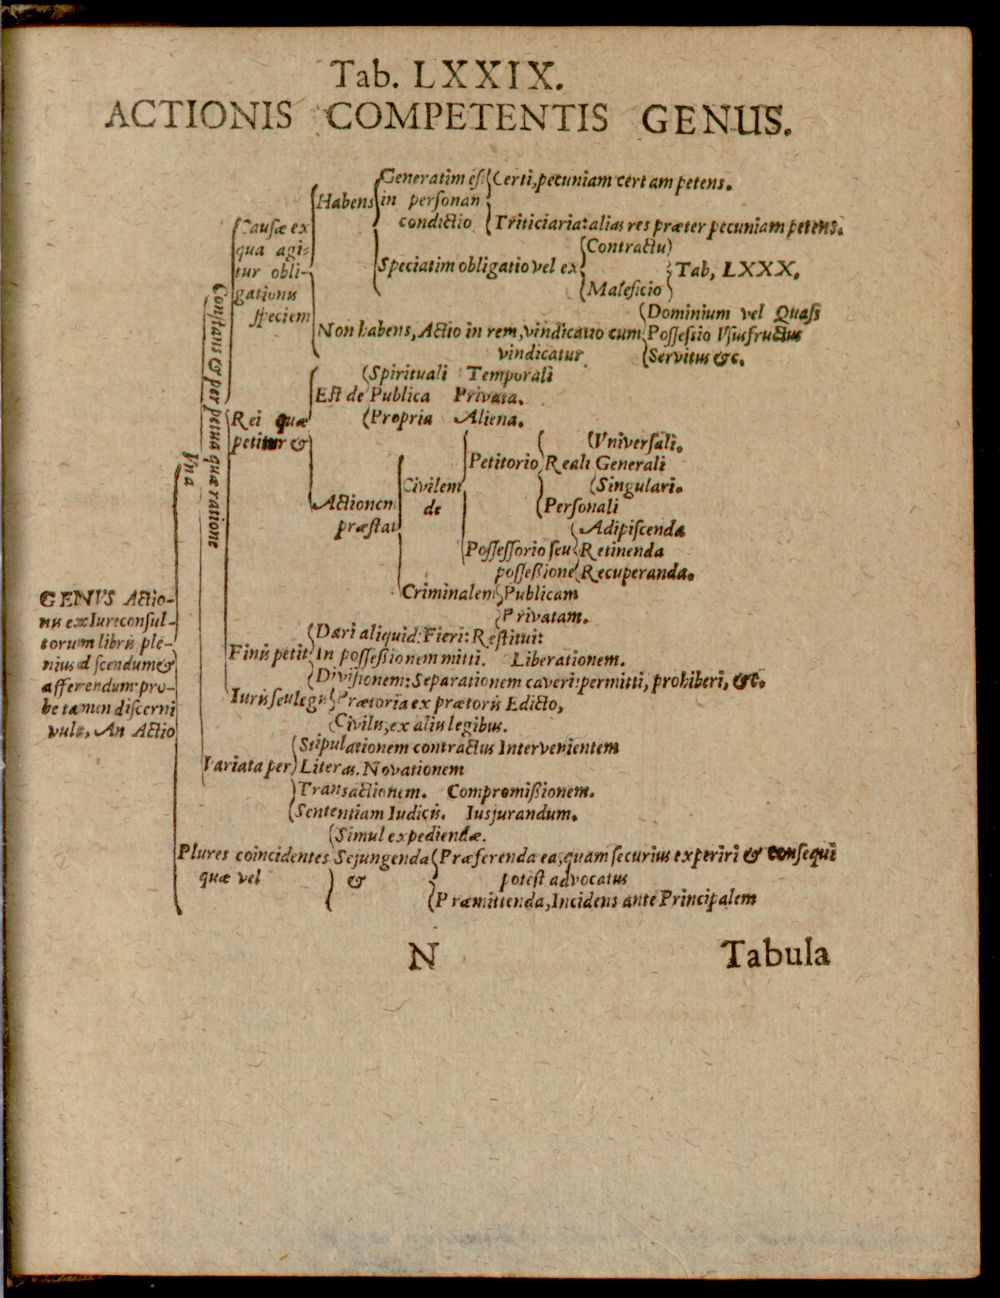 Tab. LXXIX.
ACTIONIS COMPETENTIS GENUS.
GENVS Actio-
nis ex Iureconsul-
torum libris ple-
nius discendum &
afferendum: pro-
be tamen discerni
vult, An Actio
Vna
Constans & perpetua quæ ratione
Causæ ex
qua agi-
tur obli-
gationis
speciem
Habens
Generatim est
in personam
condictio
Certi, pecuniam certam petens.
Triticiaria: alias res præter pecuniam petens.
Speciatim obligatio vel ex
Contractu
Maleficio
Tab, LXXX,
Non habens, Actio in rem, vindicatio cum
vindicatur
Dominium vel Quasi
Possessio Vsusfructus
Servitus &c.
Rei quæ
petitur &
Est de
Spirituali Temporali
Publica Privata.
Propria Aliena.
Actionem
præstat
Civilem
de
Petitorio
Reali
Vniversali.
Generali
Singulari.
Personali
Possessorio seu
possessione
Adipiscenda
Retinenda
Recuperanda.
Criminalem
Publicam
Privatam.
Finis petit
Dari aliquid: Fieri: Restitui:
in possessionem mitti. Liberationem.
Divisionem: Separationem caveri: permitti, prohiberi, &c.
Iuris seu legis
Prætoria ex prætoris Edicto,
Civilis, ex aliis legibus.
Variata per
Stipulationem contractus Intervenientem
Literas. Novationem
Transactionem. Compromissionem.
Sententiam Iudicis. Iusjurandum.
Plures coincidentes
quæ vel
Simul expediendæ.
Sejungenda
&
Præferenda ea, quam securius experiri & consequi
potest advocatus
Præmittenda, Incidens ante Principalem
N
Tabula